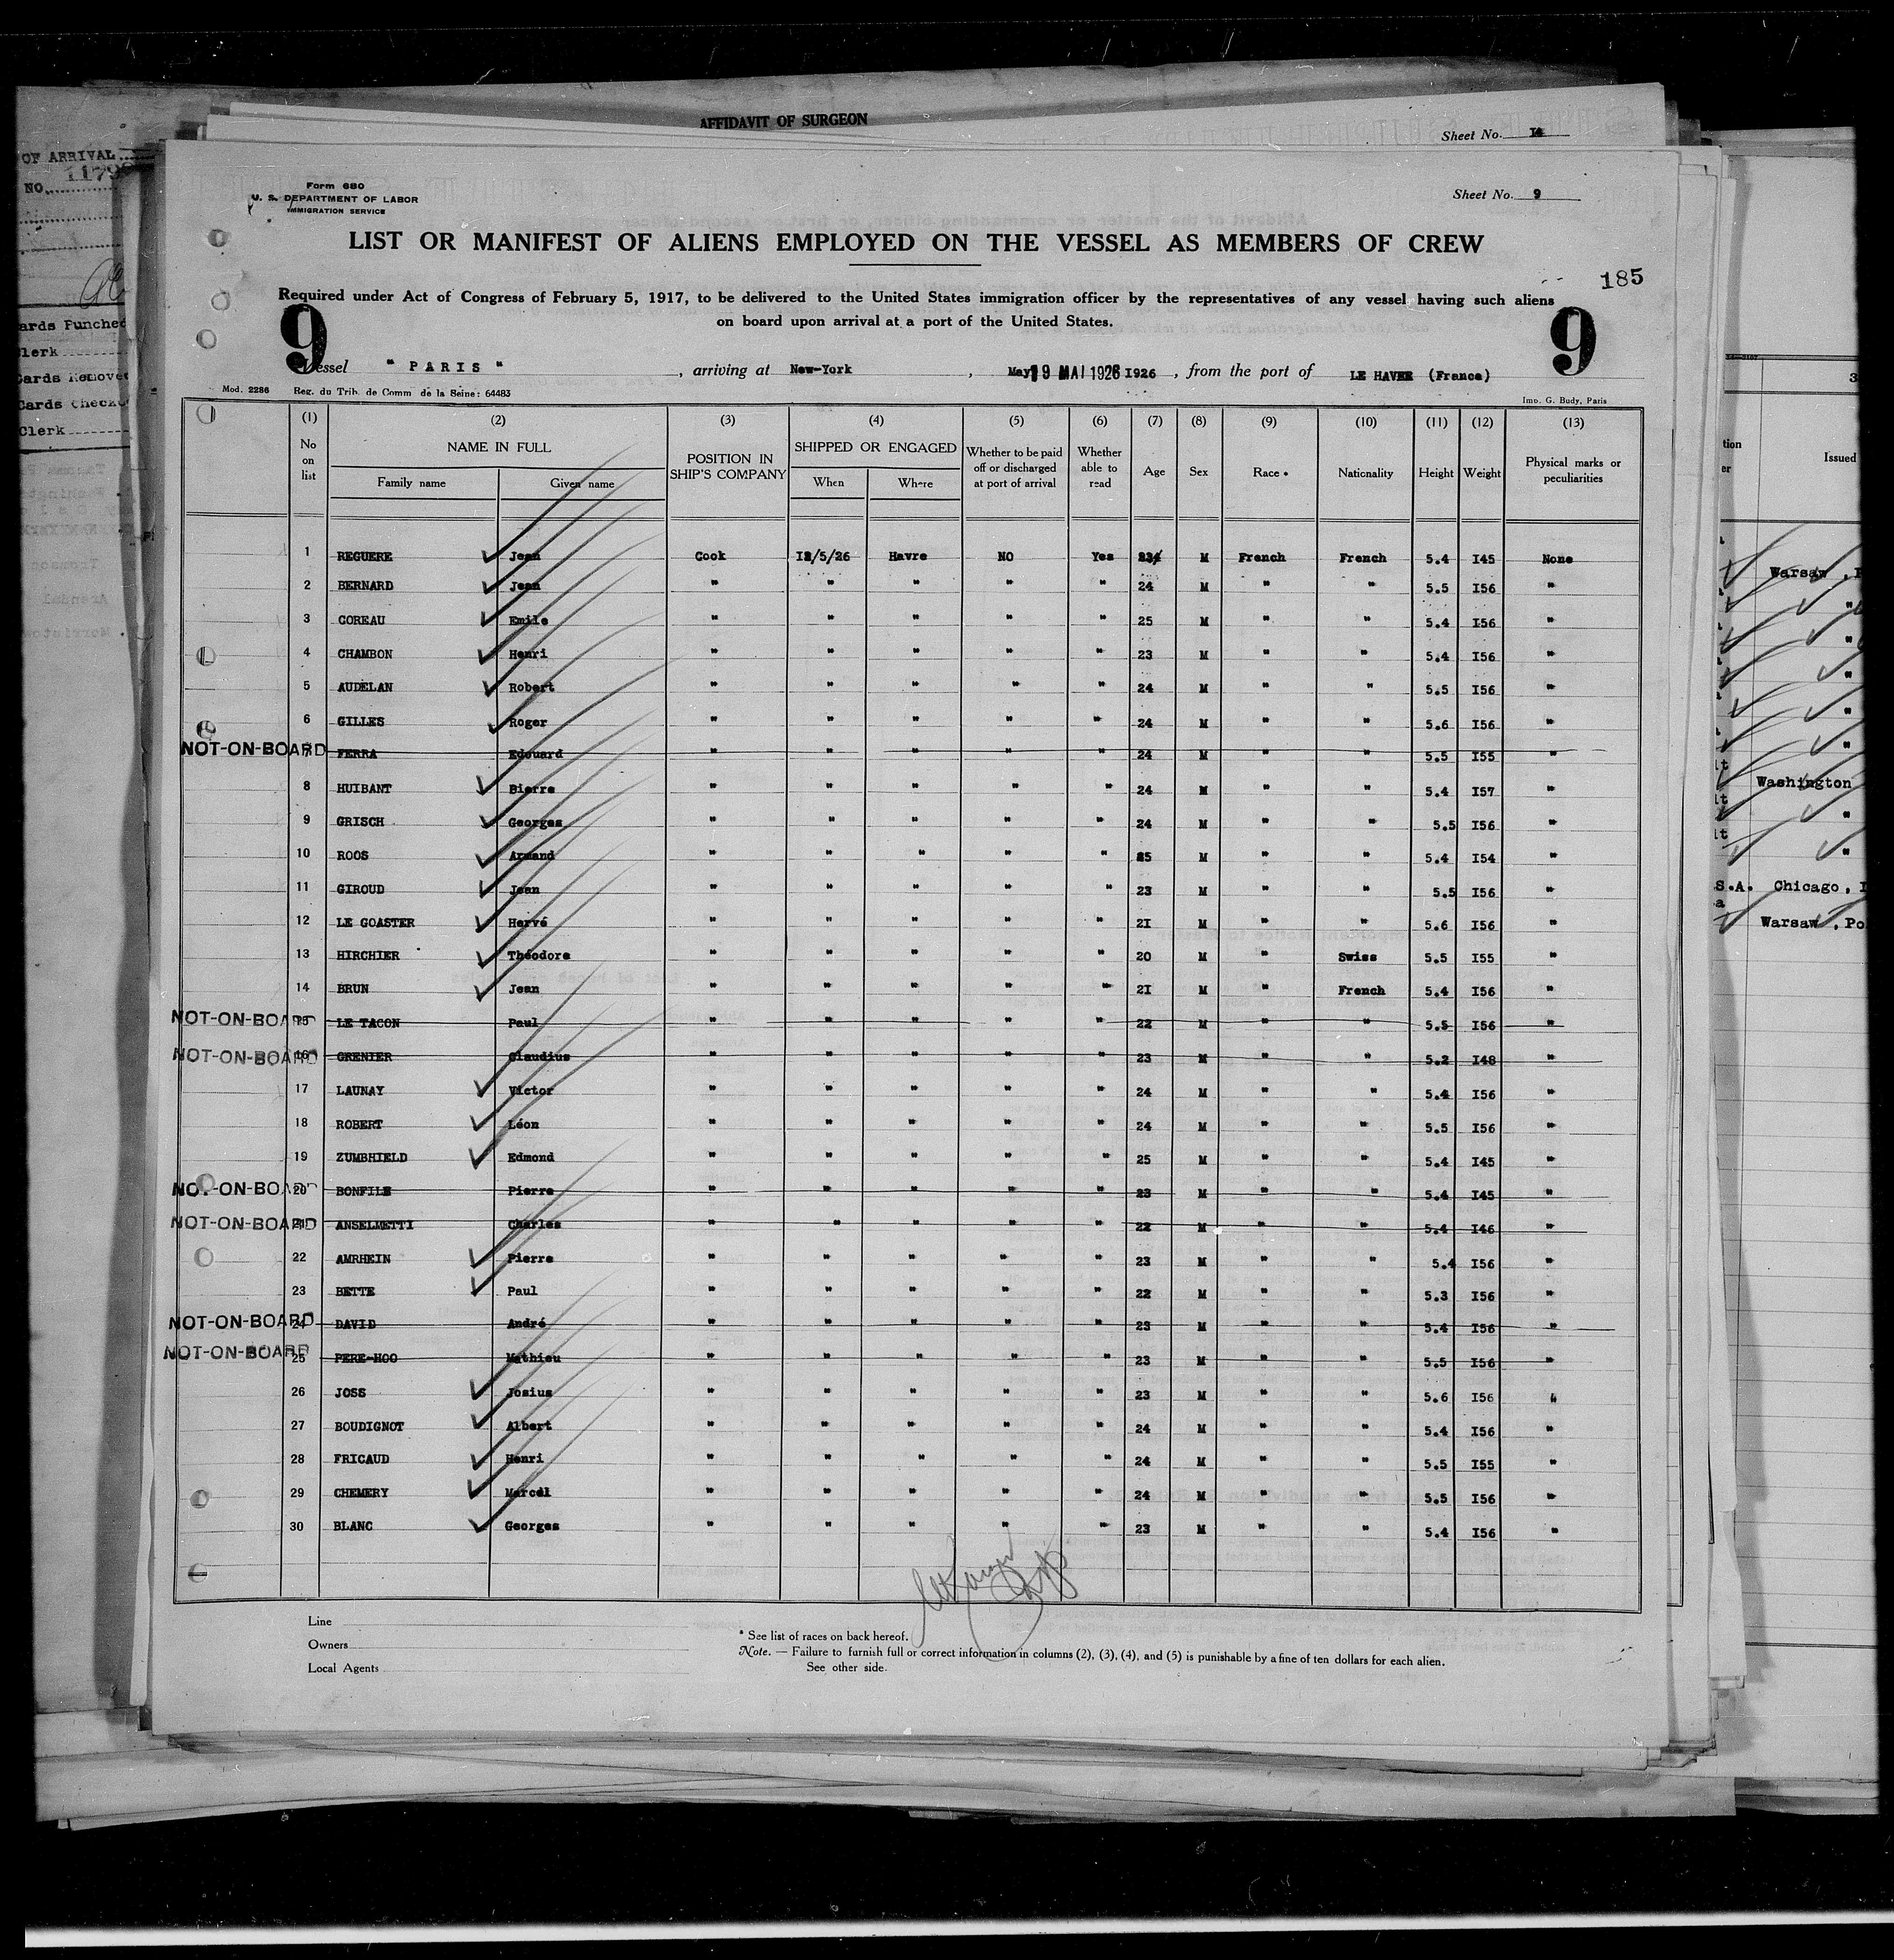 AFFIDAVIT OF SURGEON
Sheet No. 14
OF ARRIVAL
NO. 1179
Cards Punched
Clerk
Cards Removed
Cards Checked
Clerk
Form 680
U. S. DEPARTMENT OF LABOR
IMMIGRATION SERVICE
Sheet No. 9
LIST OR MANIFEST OF ALIENS EMPLOYED ON THE VESSEL AS MEMBERS OF CREW
185
Required under Act of Congress of February 5, 1917, to be delivered to the United States immigration officer by the representatives of any vessel having such aliens
on board upon arrival at a port of the United States.
9 9
Vessel " PARIS " , arriving at New-York , May 19 MAI 1926 I926 , from the port of LE HAVRE (France)
Mod. 2286 Reg. du Trib. de Comm de la Seine: 64483 Imp. G. Budy, Paris
(1) (2) (3) (4) (5) (6) (7) (8) (9) (10) (11) (12) (13)
No on list NAME IN FULL POSITION IN SHIP'S COMPANY SHIPPED OR ENGAGED Whether to be paid off or discharged at port of arrival Whether able to read Age Sex Race * Nationality Height Weight Physical marks or peculiarities
Family name Given name When Where
1 REGUERE Jean Cook I2/5/26 Havre NO Yes 23 M French French 5.4 I45 None
2 BERNARD Jean " " " " " 24 M " " 5.5 I56 "
3 COREAU Emile " " " " " 25 M " " 5.4 I56 "
4 CHAMBON Henri " " " " " 23 M " " 5.4 I56 "
5 AUDELAN Robert " " " " " 24 M " " 5.5 I56 "
6 GILLES Roger " " " " " 24 M " " 5.6 I56 "
NOT-ON-BOARD 7 FERRA Edouard " " " " " 24 M " " 5.5 I55 "
8 HUIBANT Bierre " " " " " 24 M " " 5.4 I57 "
9 GRISCH Georges " " " " " 24 M " " 5.5 I56 "
10 ROOS Armand " " " " " 25 M " " 5.4 I54 "
11 GIROUD Jean " " " " " 23 M " " 5.5 I56 "
12 LE GOASTER Hervé " " " " " 2I M " " 5.6 I56 "
13 HIRCHIER Théodore " " " " " 20 M " Swiss 5.5 I55 "
14 BRUN Jean " " " " " 2I M " French 5.4 I56 "
NOT-ON-BOARD 15 LE TACON Paul " " " " " 22 M " " 5.5 I56 "
NOT-ON-BOARD 16 GRENIER Claudius " " " " " 23 M " " 5.2 I48 "
17 LAUNAY Victor " " " " " 24 M " " 5.4 I56 "
18 ROBERT Léon " " " " " 24 M " " 5.5 I56 "
19 ZUMBHIELD Edmond " " " " " 25 M " " 5.4 I45 "
NOT-ON-BOARD 20 BONFILE Pierre " " " " " 23 M " " 5.4 I45 "
NOT-ON-BOARD 21 ANSELMETTI Charles " " " " " 22 M " " 5.4 I46 "
22 AMRHEIN Pierre " " " " " 23 M " " 5.4 I56 "
23 BETTE Paul " " " " " 22 M " " 5.3 I56 "
NOT-ON-BOARD 24 DAVID André " " " " " 23 M " " 5.4 I56 "
NOT-ON-BOARD 25 PERE-HOO Mathieu " " " " " 23 M " " 5.5 I56 "
26 JOSS Josius " " " " " 23 M " " 5.6 I56 "
27 BOUDIGNOT Albert " " " " " 24 M " " 5.4 I56 "
28 FRICAUD Henri " " " " " 24 M " " 5.5 I55 "
29 CHEMERY Marcel " " " " " 24 M " " 5.5 I56 "
30 BLANC Georges " " " " " 23 M " " 5.4 I56 "
Line
Owners
Local Agents
* See list of races on back hereof.
Note. — Failure to furnish full or correct information in columns (2), (3), (4), and (5) is punishable by a fine of ten dollars for each alien.
See other side.
Issued
Warsaw, P
Washington
S.A. Chicago, I
Warsaw, Po